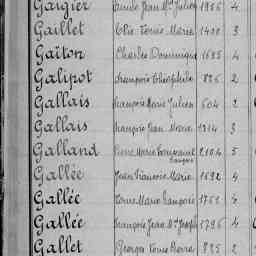 Gargier Jean Mie Julien 1956 4
Gaillet Elie Louis Marie 1400 3
Gaïton Charles Dominique 1695 4
Galipot François Théophile 826 2
Gallais François Marie Julien 604 2
Gallais François Jean Marie 1314 3
Galland Pierre Marie Toussaint François 2104 5
Gallée Jean François Marie 1692 4
Gallée Louis Marie François 1751 4
Gallée François Jean Mie Joseph 1796 4
Gallet Georges Louis Pierre 825 2